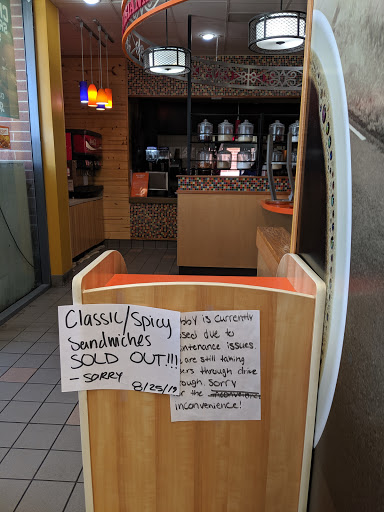 Classic/Spicy
Sandwiches
SOLD OUT!!!
- SORRY 8/25/19
is currently
due to
issues.
are still taking
through drive
. Sorry
the
inconvenience!